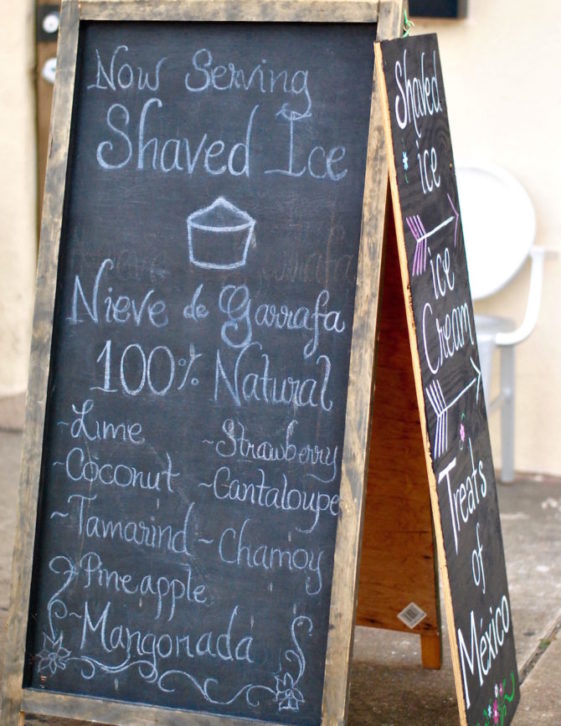 Now Serving
Shaved Ice
Nieve de Garrafa
100% Natural
~Lime
~Strawberry
~Coconut
~Cantaloupe
~Tamarind
~Chamoy
~Pineapple
~Mangonada
Shaved
ice
ice
Cream
Treats
of
México